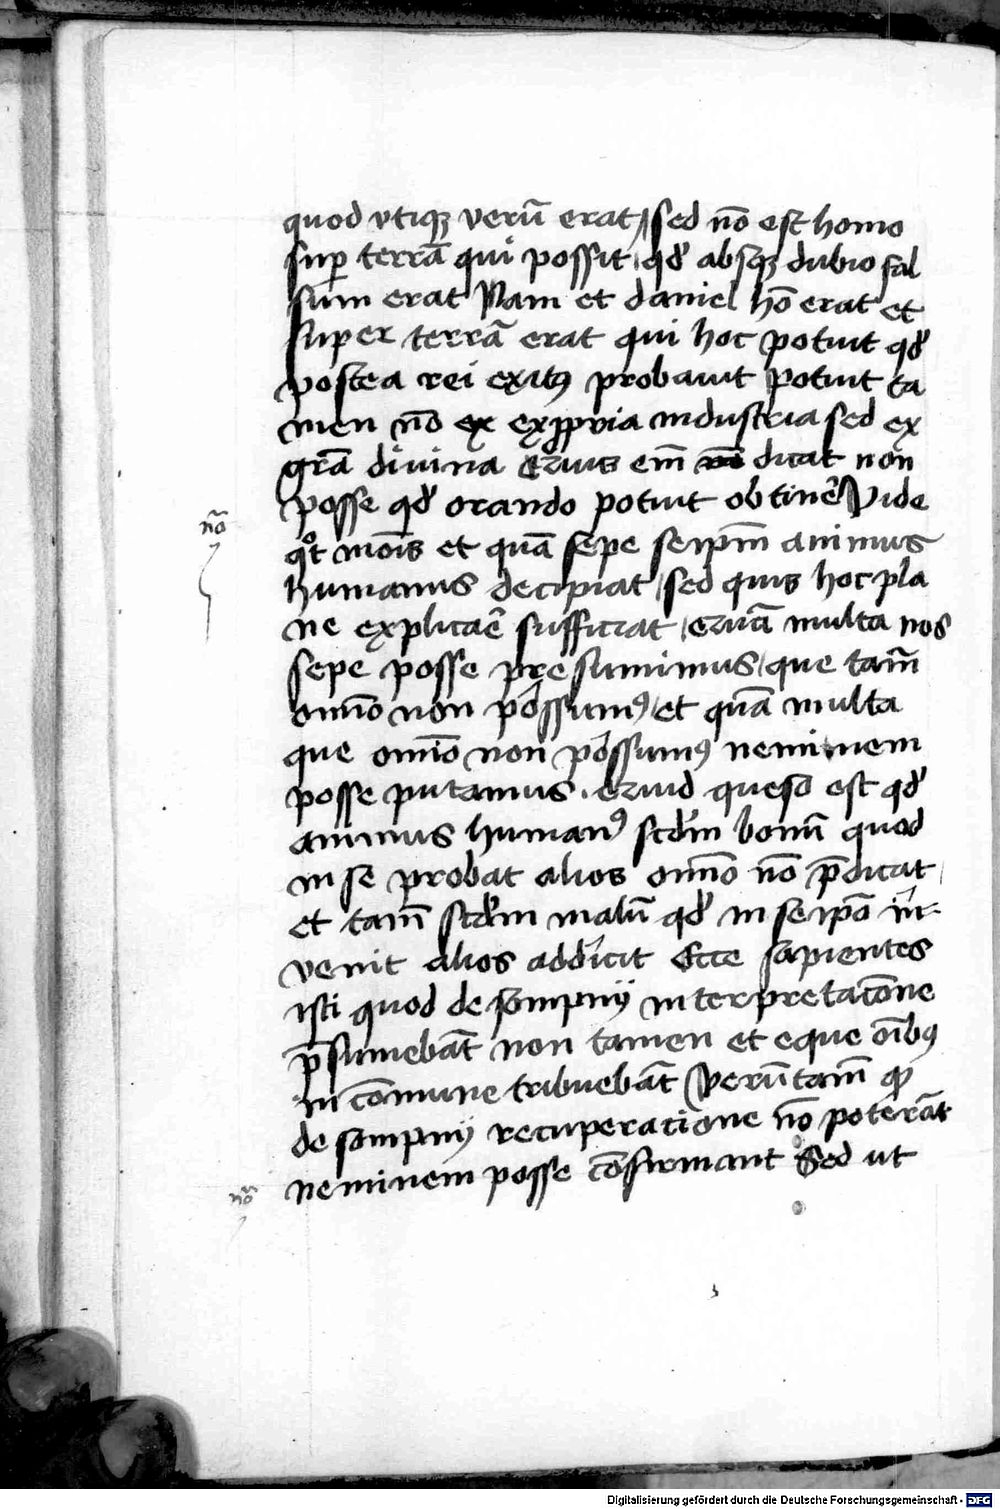 quod vtiqꝫ verū erat / sed nō est homo
suꝑ terrā qui possit , qđ absqꝫ dubio fal
sum erat Nam et daniel hō erat et
super terrā erat qui hoc potuit qđ
postea rei exitꝰ probauit potuit ta
men nō ex ex ꝓpria industria sed ex
grā diuina em̄ dicat non
posse qđ orando potuit obtinē Vide
nō
qͦt mōis et quā sepe seipm̄ animus
humanus decipiat / sed quis hoc pla
ne explicaē sufficiat / multa nos
sepe posse presumimus / que tam̄
om̄io non possumꝰ / et quā multa
que om̄io non possumꝰ neminem
posse putamus . queso est qđ
animus humanꝰ bonū quod
in se probat alios om̄io nō p̄dicat
et tam̄ malū qđ in seipō in-
venit alios addicit Ecce sapientes
isti quod de sompnij interpretacōne
p̄sumebāt non tamen et eque oībꝰ
in cōmune tribuebāt Verūtam̄ qđ
de sompnij recuperatione nō poterāt
neminem posse cōfirmant Sed ut
nō